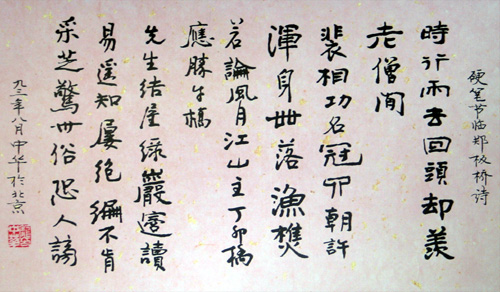 硬笔节临郑板桥诗
時行雨去回頭却羨
老僧閒
裴相功名冠四朝許
渾身世落漁樵
若論風月江山主丁卯橋
應勝午橋
先生結屋綠巖邊讀
易遥知屢絕編不肯
采芝驚世俗恐人謗
九三年八月中华於北京